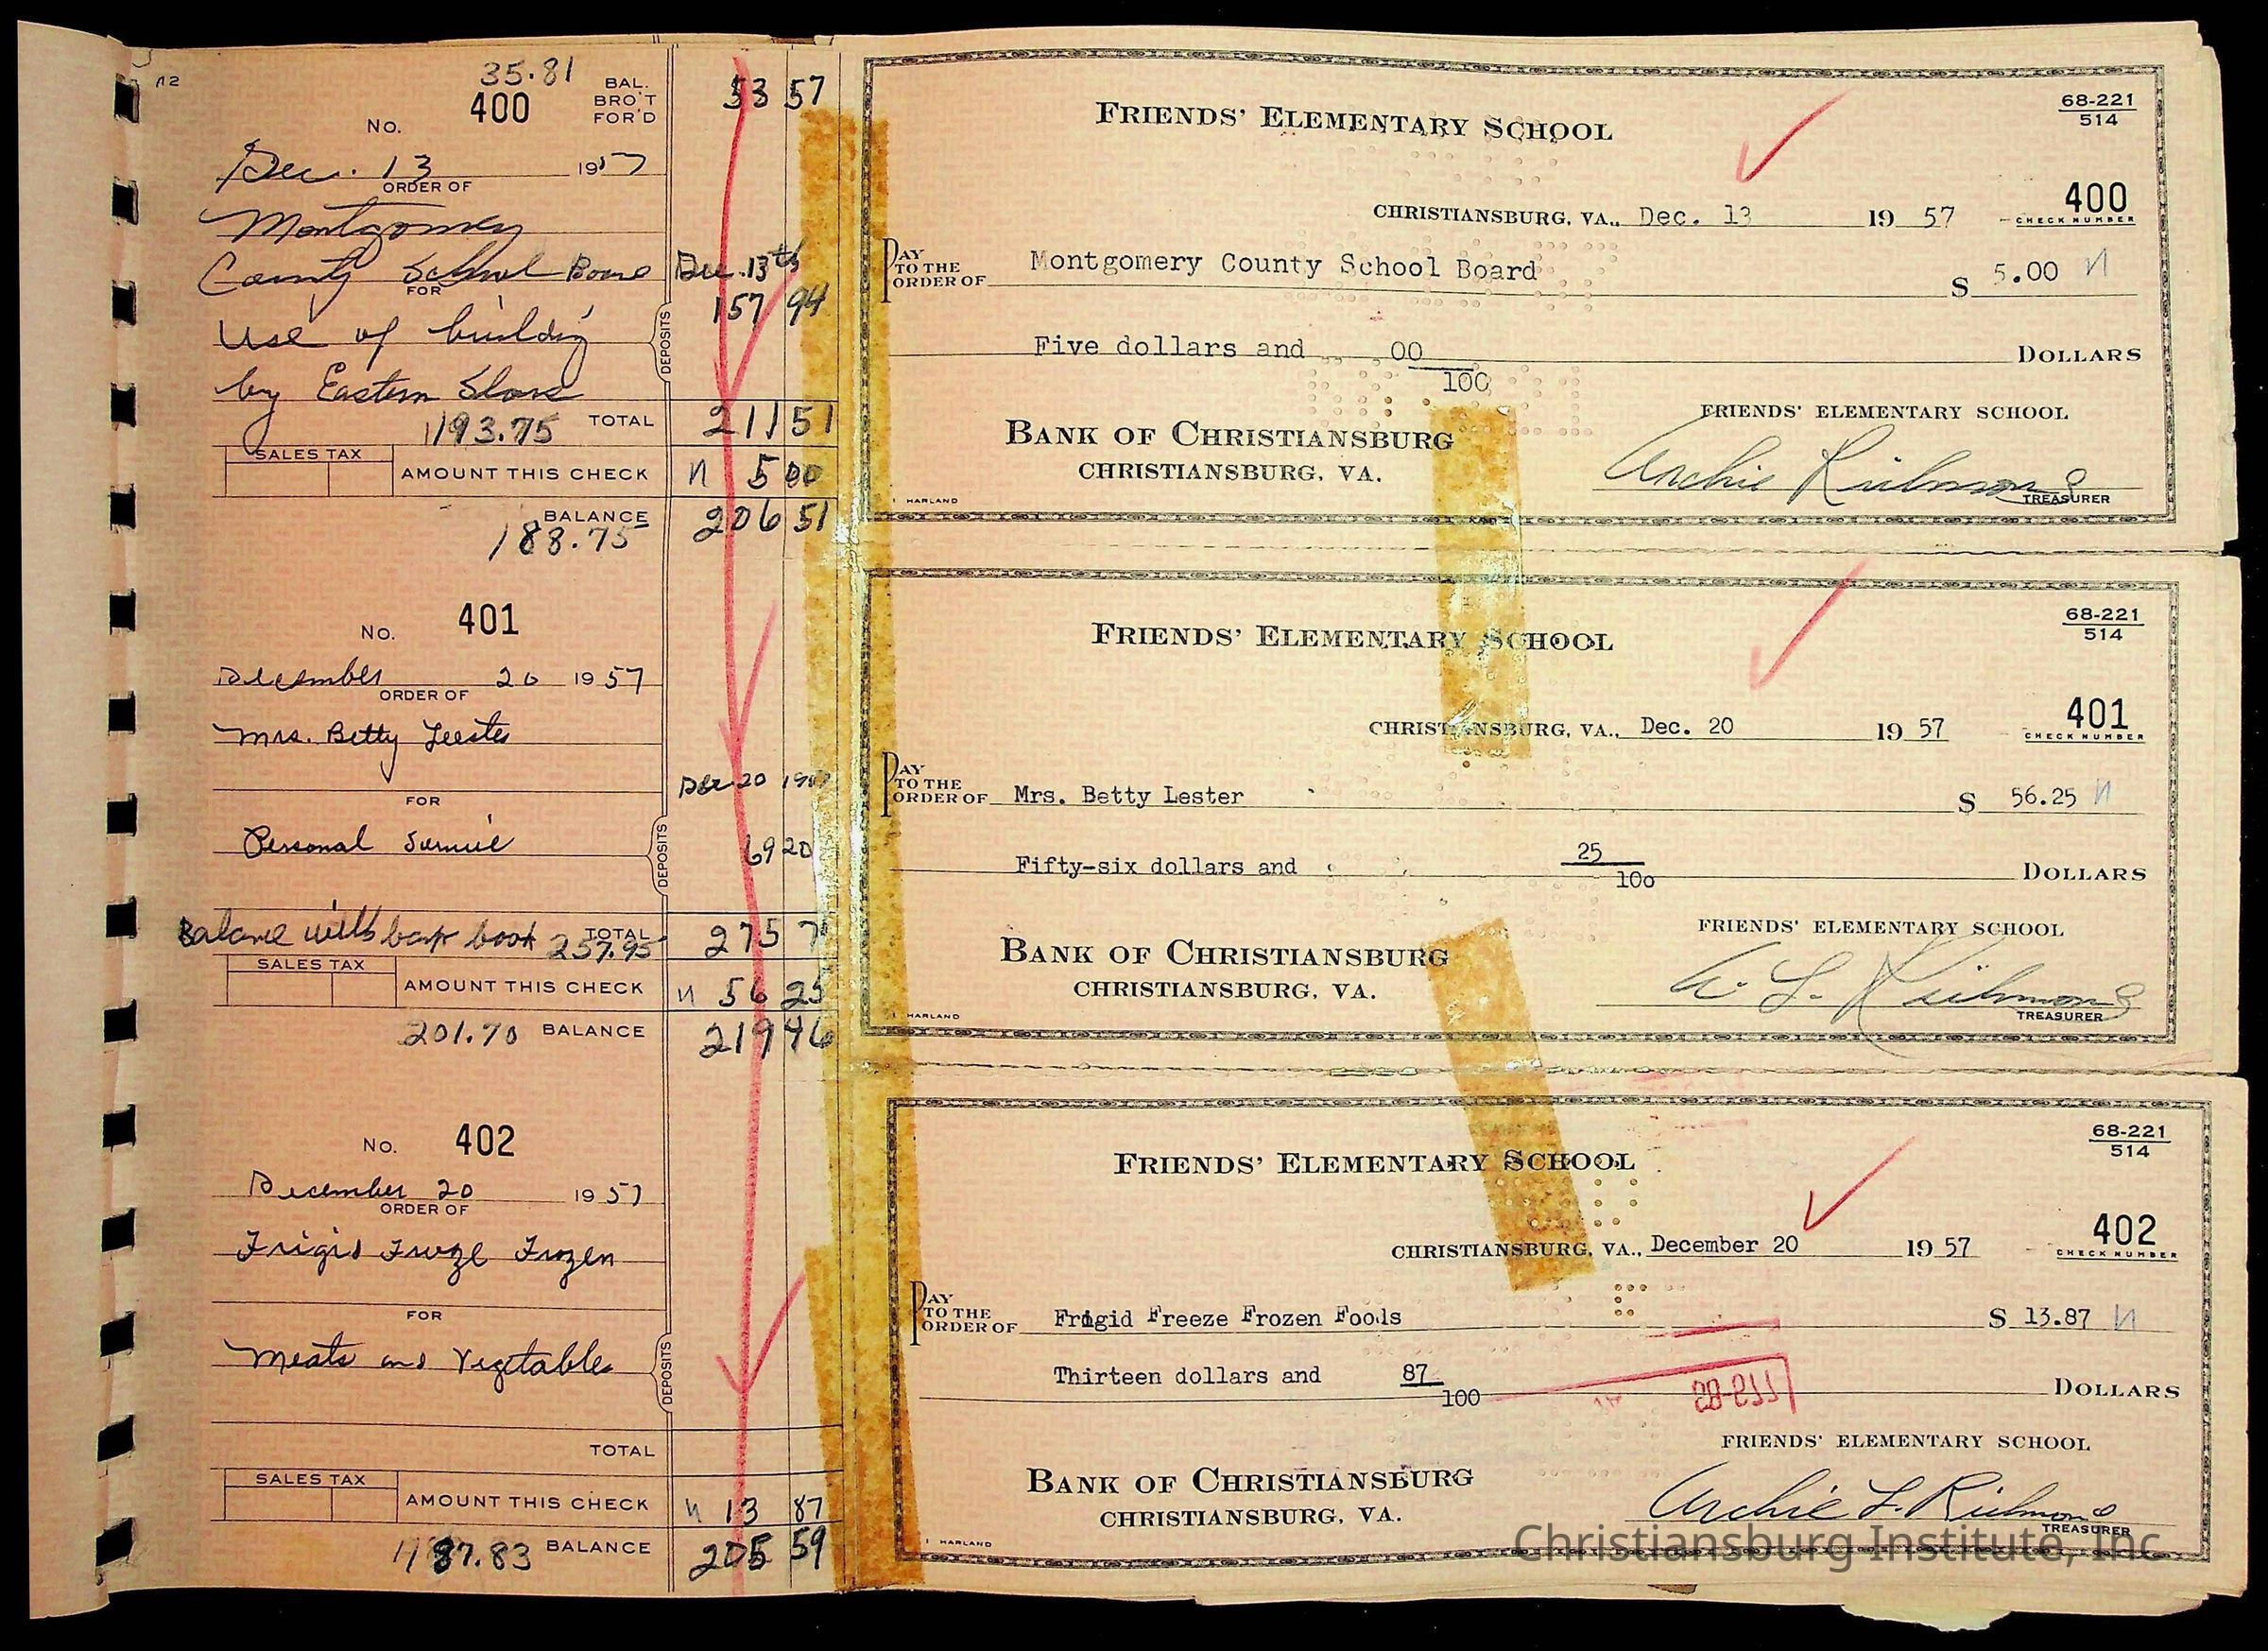 35.81
No. 400
BAL. BRO'T FOR'D 53 57
Dec. 13 1957
ORDER OF
Montgomery
County School Board
Dec. 13th
FOR
157 94
DEPOSITS
Use of building
by Eastern Stars
193.75 TOTAL 211 51
SALES TAX
AMOUNT THIS CHECK 5 00
BALANCE 206 51
188.75
No. 401
December 20 1957
ORDER OF
Mrs. Betty Leester
Dec 20 1957
FOR
Personal Service
DEPOSITS
69 20
Balance with bank book 257.95
TOTAL 275 7
SALES TAX
AMOUNT THIS CHECK 56 25
201.70 BALANCE 219 46
No. 402
December 20 1957
ORDER OF
Frigid Froze Frozen
FOR
Meats and Vegetables
DEPOSITS
TOTAL
SALES TAX
AMOUNT THIS CHECK 13 87
187.83 BALANCE 205 59
FRIENDS' ELEMENTARY SCHOOL
68-221
514
CHRISTIANSBURG, VA., Dec. 13 19 57
400
CHECK NUMBER
PAY TO THE ORDER OF Montgomery County School Board $ 5.00
Five dollars and 00/100 DOLLARS
FRIENDS' ELEMENTARY SCHOOL
BANK OF CHRISTIANSBURG
CHRISTIANSBURG, VA.
Archie Richmond
TREASURER
HARLAND
FRIENDS' ELEMENTARY SCHOOL
68-221
514
CHRISTIANSBURG, VA., Dec. 20 19 57
401
CHECK NUMBER
PAY TO THE ORDER OF Mrs. Betty Lester $ 56.25
Fifty-six dollars and 25/100 DOLLARS
FRIENDS' ELEMENTARY SCHOOL
BANK OF CHRISTIANSBURG
CHRISTIANSBURG, VA.
A. L. Richmond
TREASURER
HARLAND
FRIENDS' ELEMENTARY SCHOOL
68-221
514
CHRISTIANSBURG, VA., December 20 19 57
402
CHECK NUMBER
PAY TO THE ORDER OF Frigid Freeze Frozen Foods $ 13.87
Thirteen dollars and 87/100 DOLLARS
FRIENDS' ELEMENTARY SCHOOL
BANK OF CHRISTIANSBURG
CHRISTIANSBURG, VA.
Archie L. Richmond
TREASURER
HARLAND
Christiansburg Institute, Inc